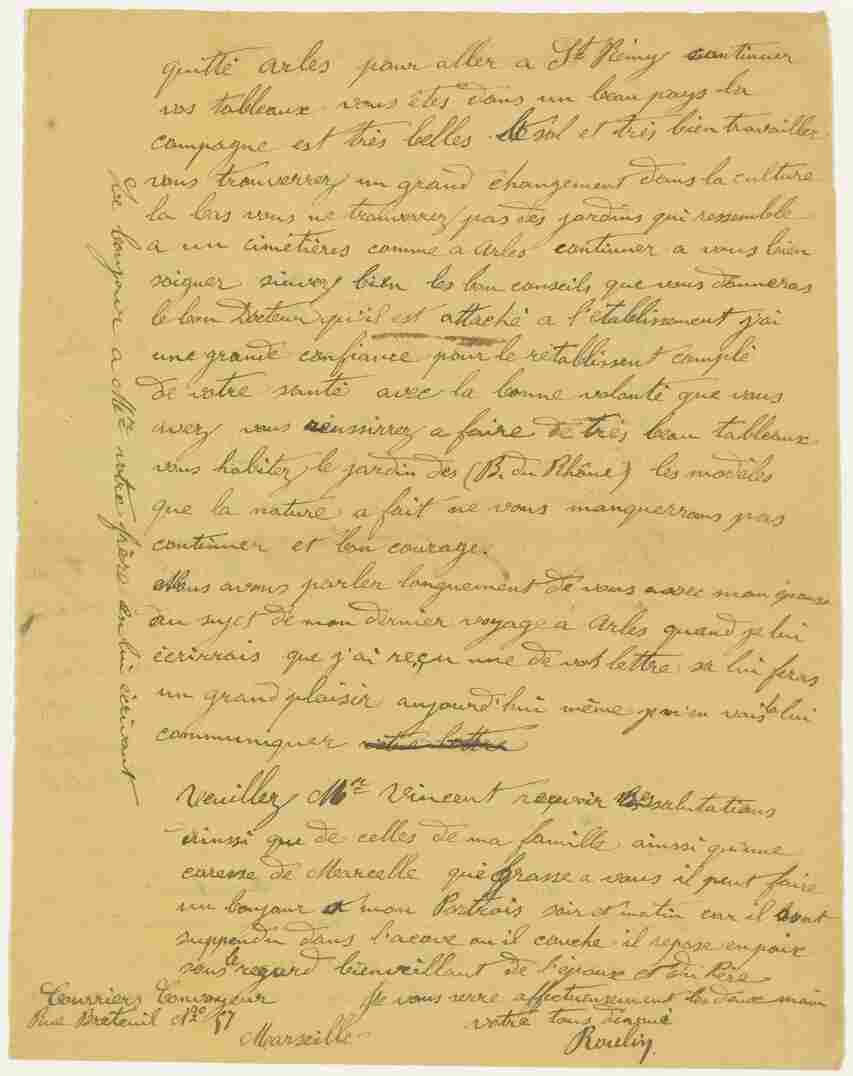 quitté arles pour aller a St Rémy continuer
vos tableaux vous êtes dans un beau pays la
compagne est très belles le sol et très bien travailler
vous trouverrez un grand changement dans la culture
la bas vous ne trouverrez pas des jardins qui ressemble
a un cimétières comme a Arles continuer a vous bien
soigner suivez bien les bon conseils que vous donneras
le bon Docteur qu'il est attaché a l'établissement j'ai
une grande confiance pour le rétablissent complé
de votre santé avec la bonne volonté que vous
avez vous réussirrez a faire de très beau tableaux
vous habitez le jardin des (B. du Rhône) les modèles
que la nature a fait ne vous manquerrons pas
continuer et bon courage.
Nous avons parler longuement de vous avec mon épouse
au sujet de mon dernier voyage a Arles quand je lui
écrirrais que j'ai reçu une de vos lettre sa lui feras
un grand plaisir aujourd'hui même je m'en vais le lui
communiquer votre lettre
Veuillez Mr Vincent reçevoir mes salutations
ainsi que de celles de ma famille ainsi qu'une
caresse de Marcelle que grasse a vous il peut faire
un bonjour a mon Portrais soir et matin car il
suppendu dans l'acove ou il couche il repose en paix
sous le regard bienveillant de l'époux et du Père
Je vous serre affectueusement les deux main
votre tous dingué
Roulin
Courrier Convoyeur
Rue Breteuil No 57
Marseille
Le bonjour a Mr votre frère en lui écrivant